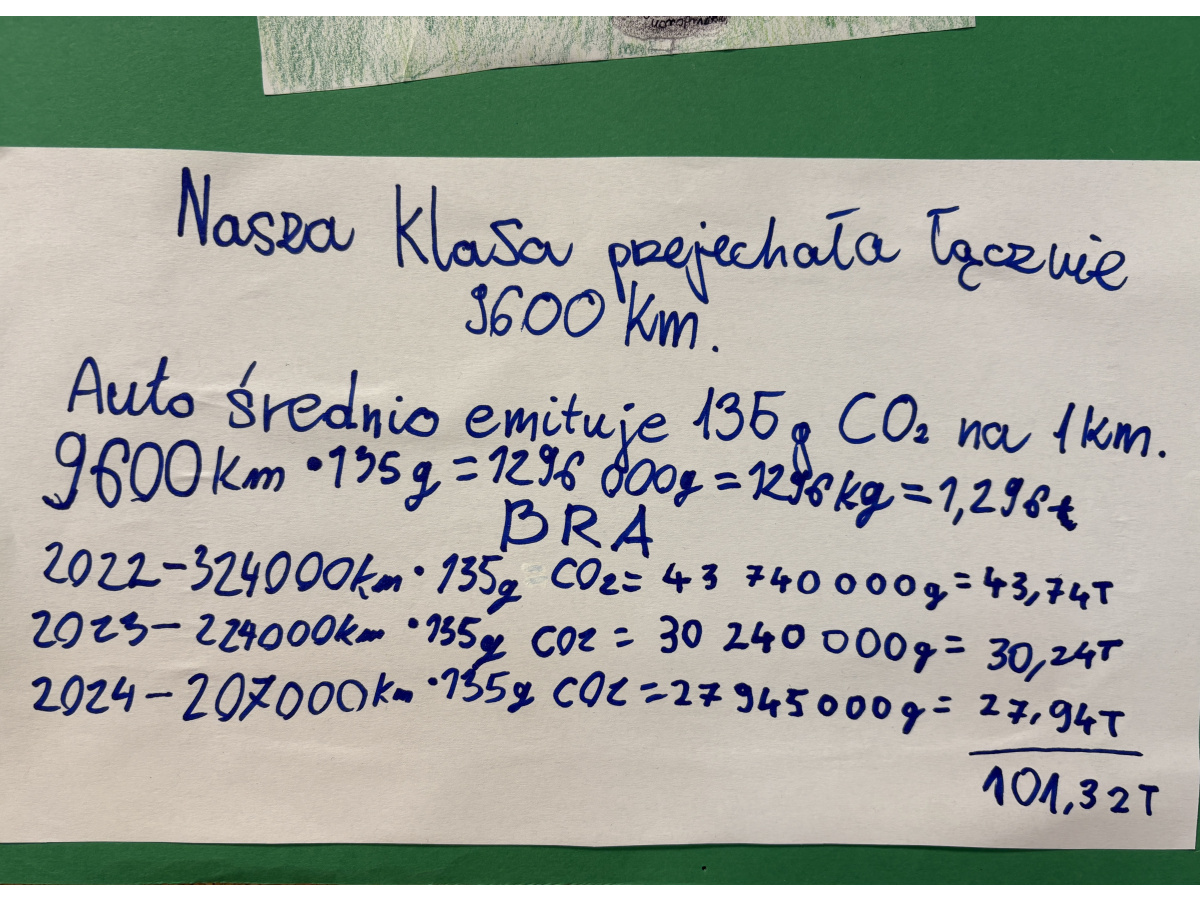 Nasza Klasa przejechała łącznie
9600 km.
Auto średnio emituje 135g CO₂ na 1km.
9600km • 135g = 1296 000g = 1296kg = 1,296t
BRA
2022-324000km • 135g CO₂ = 43 740 000g = 43,74T
2023-224000km • 135g CO2 = 30 240 000g = 30,24T
2024-207000km • 135g CO2 = 27 945 000g = 27,94T
101,32T